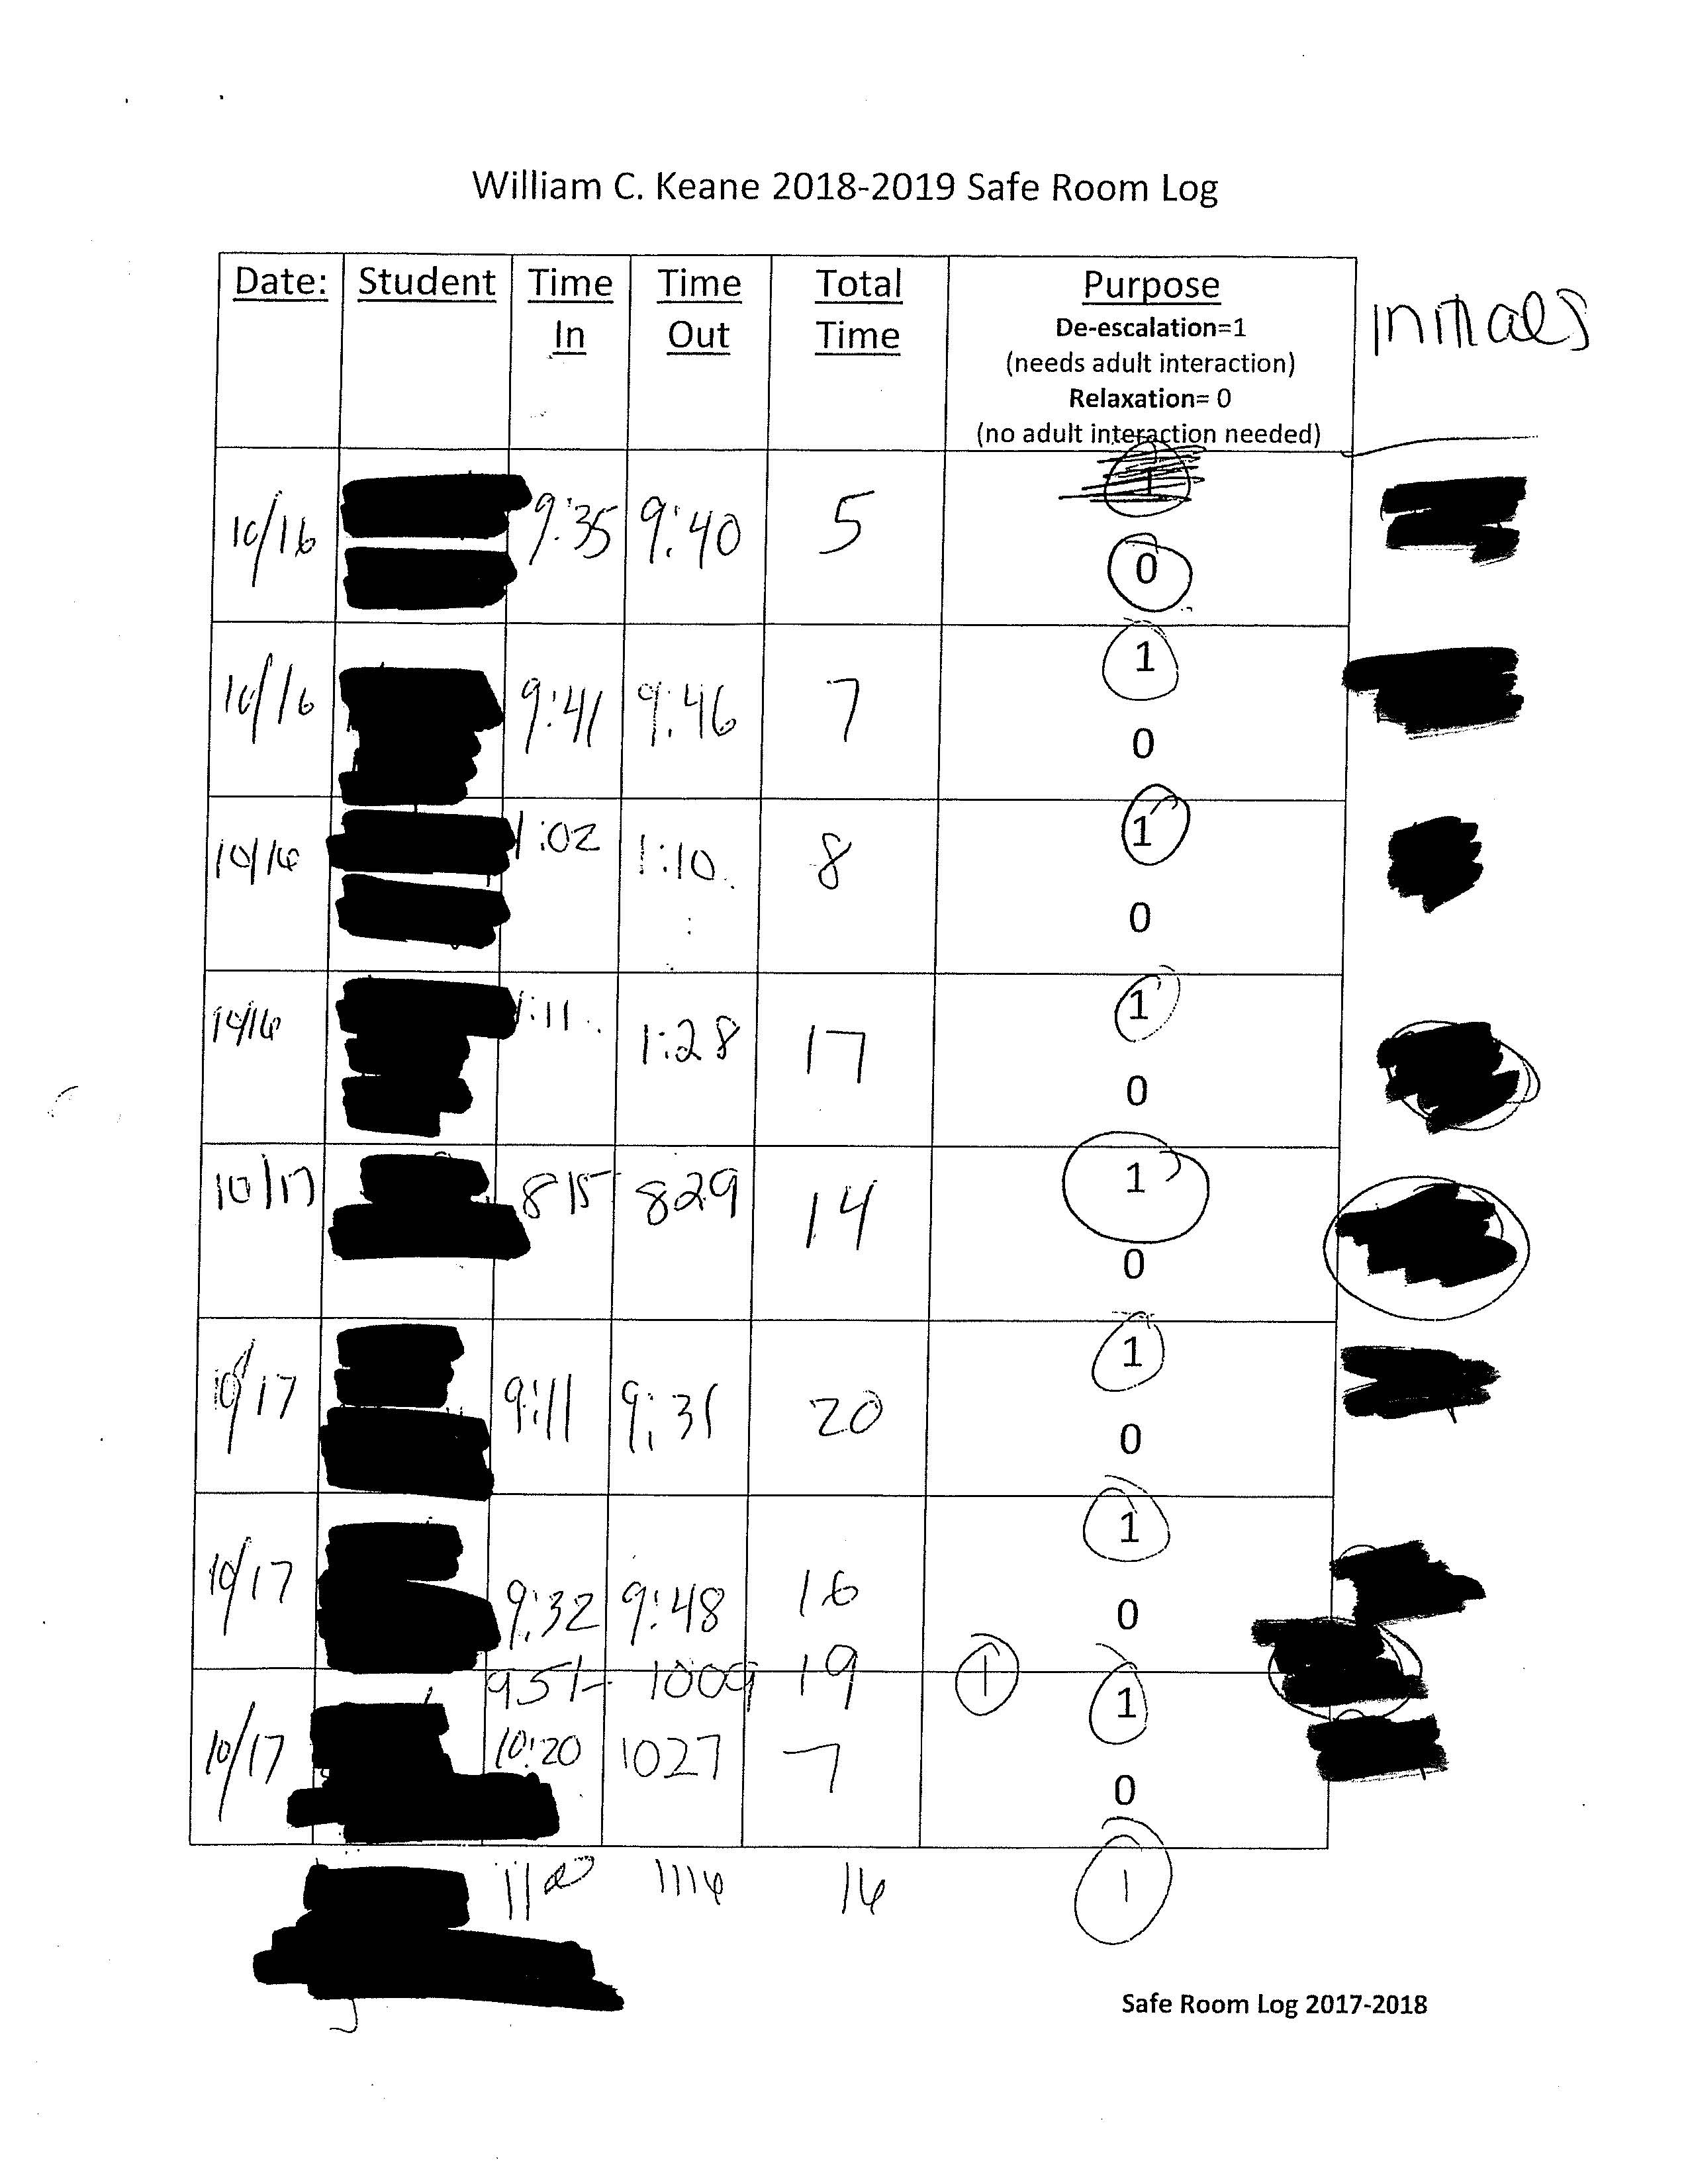 William C. Keane 2018-2019 Safe Room Log
Date: Student Time In Time Out Total Time Purpose
De-escalation=1
(needs adult interaction)
Relaxation= 0
(no adult interaction needed)
Initials
10/16 9:35 9:40 5 1
0
10/16 9:41 9:46 7 1
0
10/16 1:02 1:10 8 1
0
10/16 1:11 1:28 17 1
0
10/17 815 829 14 1
0
10/17 9:11 9:31 20 1
0
10/17 9:32 9:48 16 1
0
951- 1009 19 1
10/17 10:20 1027 7 1
0
1116 16 1
Safe Room Log 2017-2018